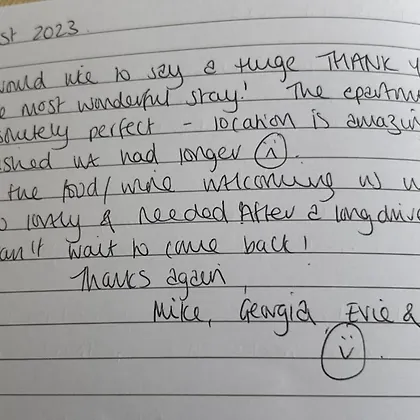 st 2023.
would like to say a Huge THANK Y
e most wonderful stay! The apartme
solutely perfect - location is amazin
shed we had longer
the food/wine welcoming us w
o lovely & needed After a long drive
an't wait to come back!
Thanks again,
Mike, Georgia, Evie &